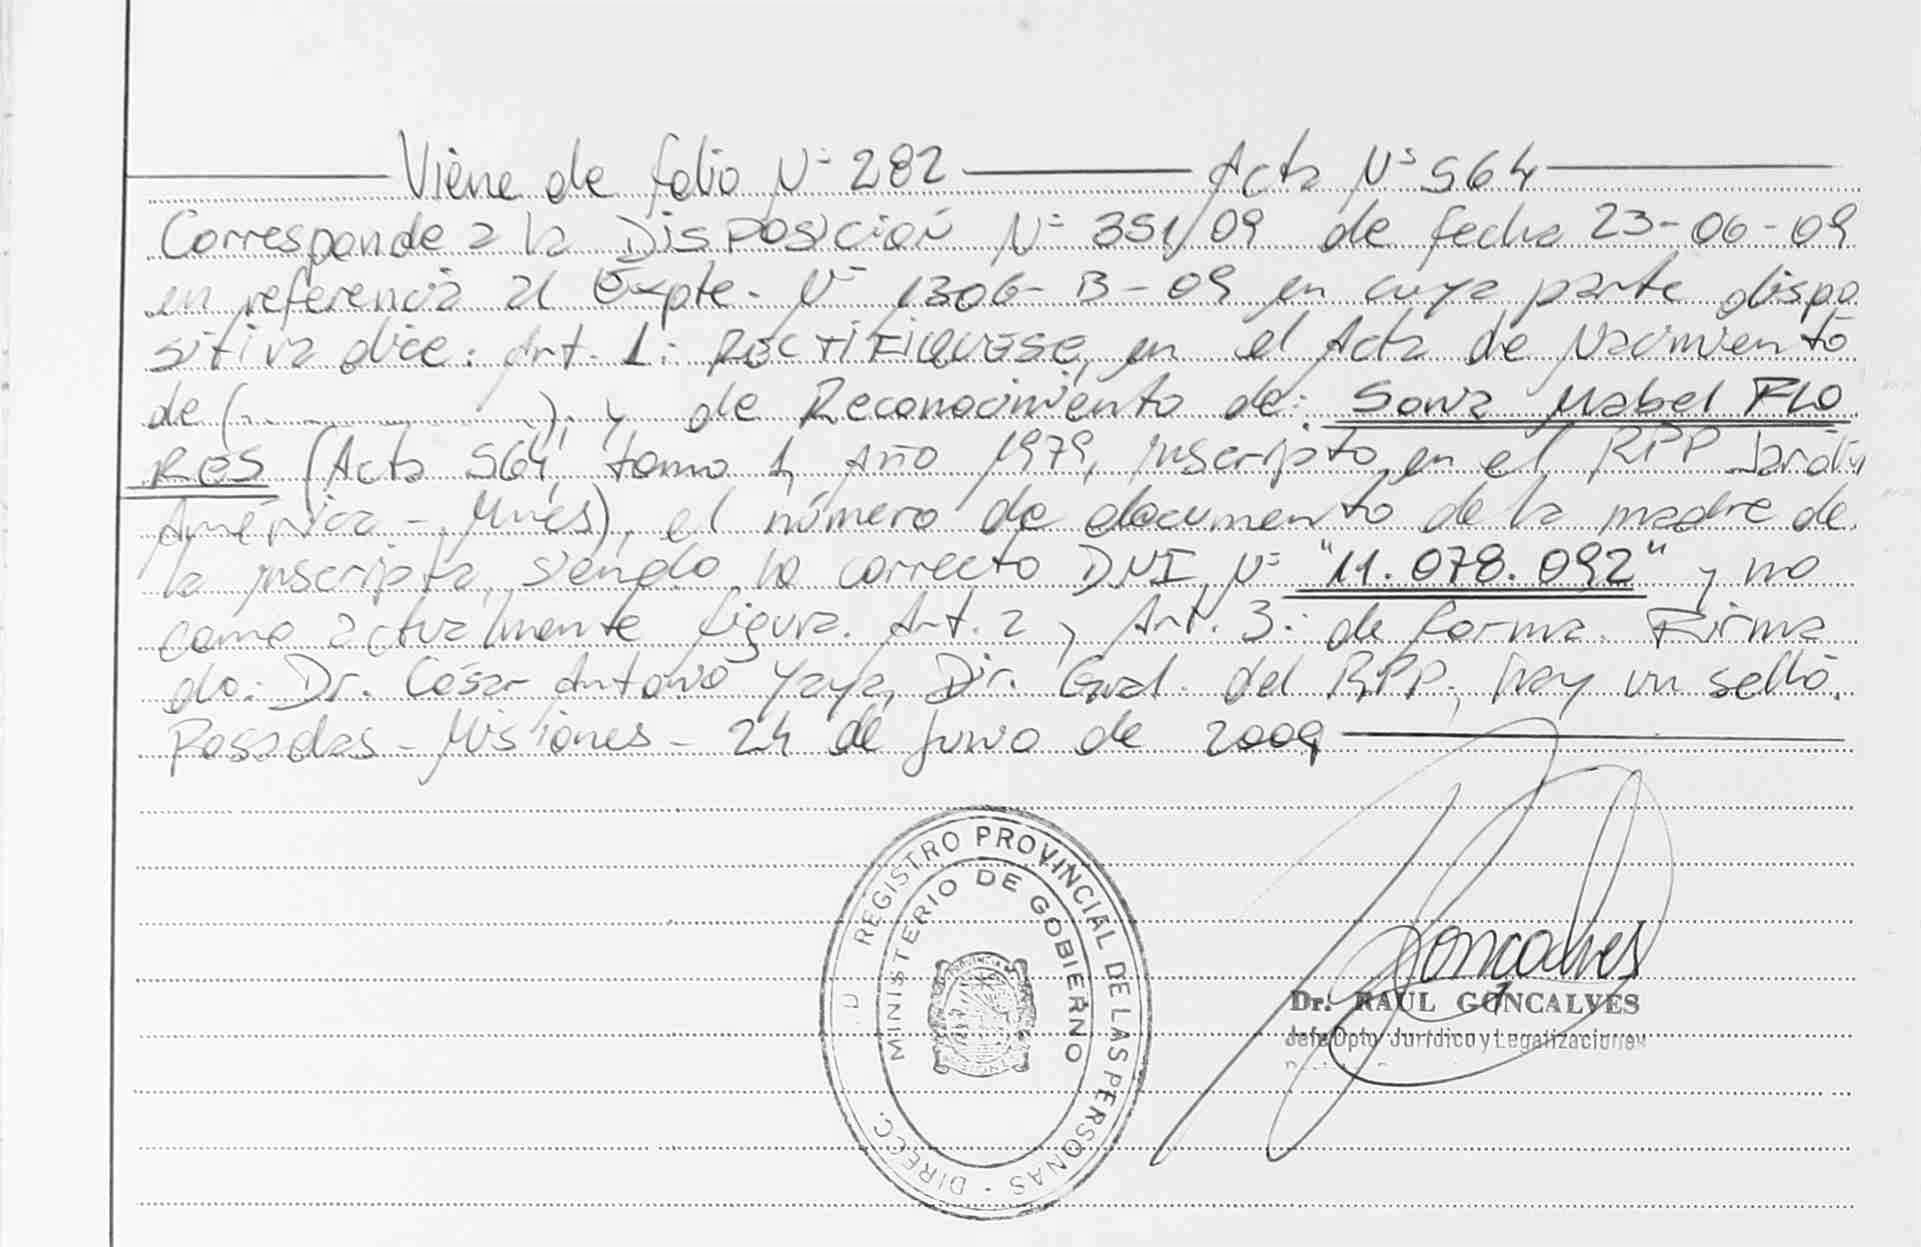 Viene de folio Nº 282 Acta Nº 564
Corresponde a la Disposición Nº 351/09 de fecha 23-06-09
en referencia al Expte. Nº 1306-B-09 en cuya parte dispo
sitiva dice: Art. 1: RECTIFIQUESE, en el Acta de Nacimiento
de (............) y de Reconocimiento de: Sonia Mabel FLO
RES (Acta 564, tomo 1, Año 1979, inscripto en el RPP Jardín
América - Mnes), el número de documento de la madre de
la inscripta, siendo lo correcto DNI Nº "11.078.092" y no
como actualmente figura. Art. 2 y Art. 3: de forma. Firma
do: Dr. César Antonio Yaya, Dir. Gral. del RPP, hay un sello.
Posadas - Misiones - 24 de Junio de 2009
REGISTRO PROVINCIAL DE LAS PERSONAS - DIRECC.
MINISTERIO DE GOBIERNO
Goncalves
Dr. RAUL GONCALVES
Jefe Dpto Jurídico y Legalizaciones